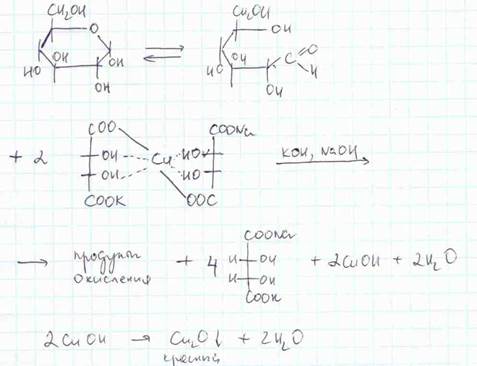 CH₂OH CH₂OH
O OH
OH OH C O
HO OH HO OH H
OH
COO COONa
+ 2 OH Cu HO KOH, NaOH
OH HO
COOK OOC
→ продукты окисления + 4 COONa H OH H OH COOK + 2CuOH + 2H₂O
2CuOH → Cu₂O↓ + 2H₂O
красный